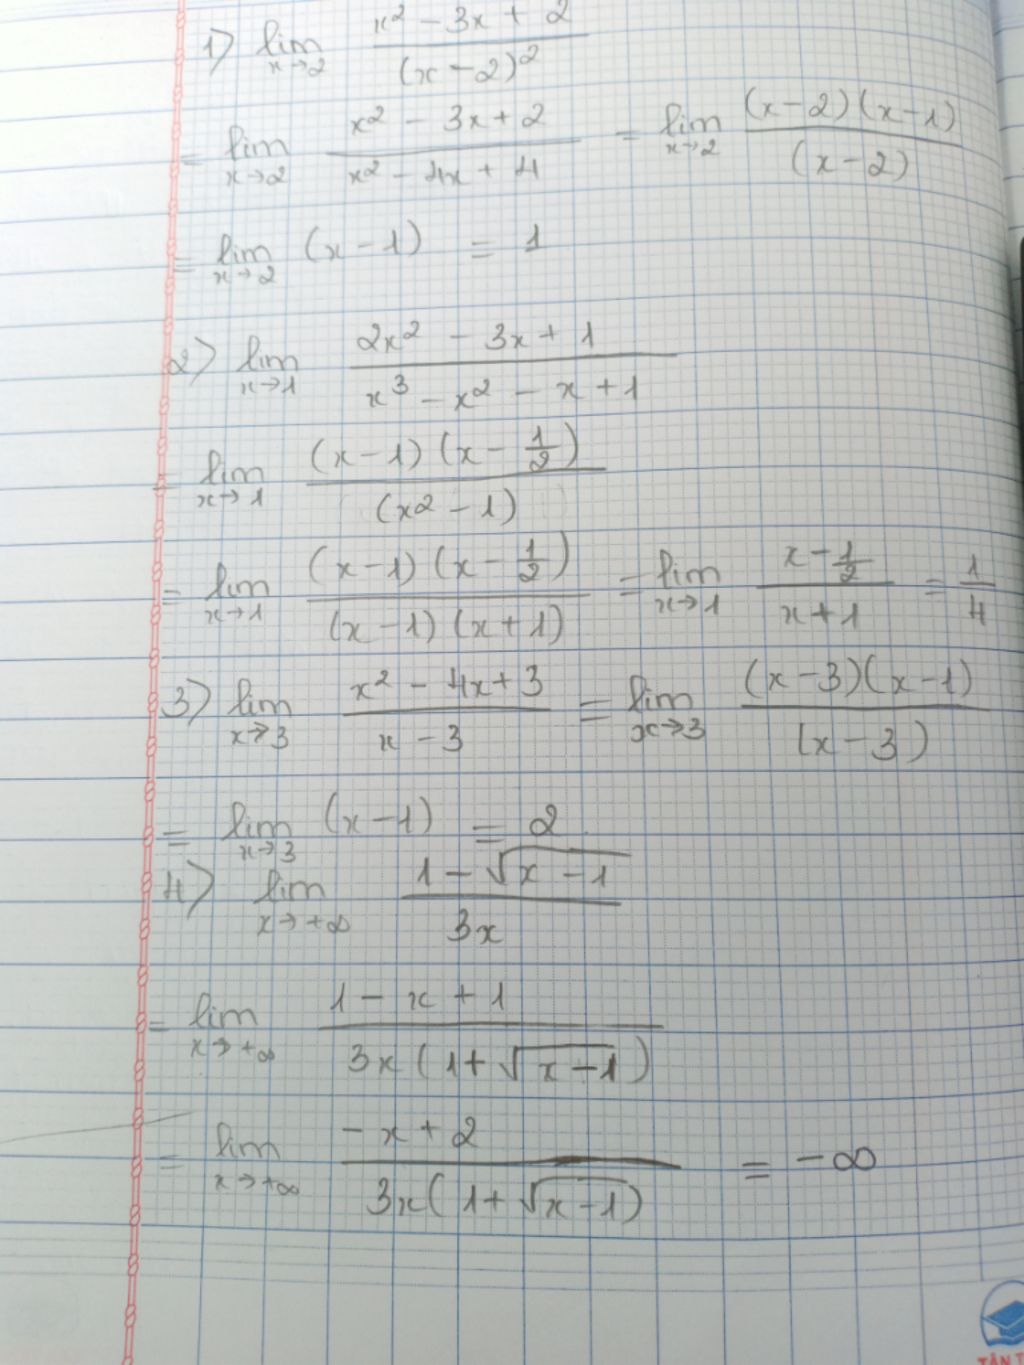 1) lim x→2 (x² - 3x + 2)/((x - 2)²)
= lim x→2 (x² - 3x + 2)/(x² - 4x + 4) = lim x→2 ((x - 2)(x - 1))/((x - 2))
= lim x→2 (x - 1) = 1
2) lim x→1 (2x² - 3x + 1)/(x³ - x² - x + 1)
= lim x→1 ((x - 1)(x - 1/2))/((x² - 1))
= lim x→1 ((x - 1)(x - 1/2))/((x - 1)(x + 1)) = lim x→1 (x - 1/2)/(x + 1) = 1/4
3) lim x→3 (x² - 4x + 3)/(x - 3) = lim x→3 ((x - 3)(x - 1))/((x - 3))
= lim x→3 (x - 1) = 2
4) lim x→+∞ (1 - √(x - 1))/(3x)
= lim x→+∞ (1 - x + 1)/(3x(1 + √(x - 1)))
= lim x→+∞ (-x + 2)/(3x(1 + √(x - 1))) = -∞